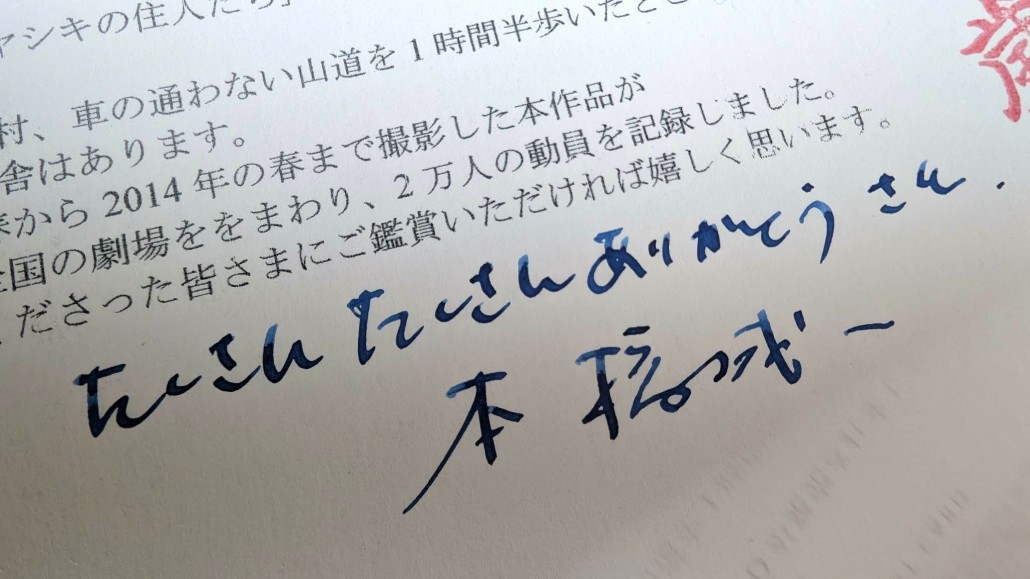 ヤシキの住人たち」
村、車の通わない山道を1時間半歩いたとこ
舎はあります。
から 2014 年の春まで撮影した本作品が
全国の劇場ををまわり、2 万人の動員を記録しました。
ださった皆さまにご鑑賞いただければ嬉しく思います。
たくさんたくさんありがとうさん.
本橋成一